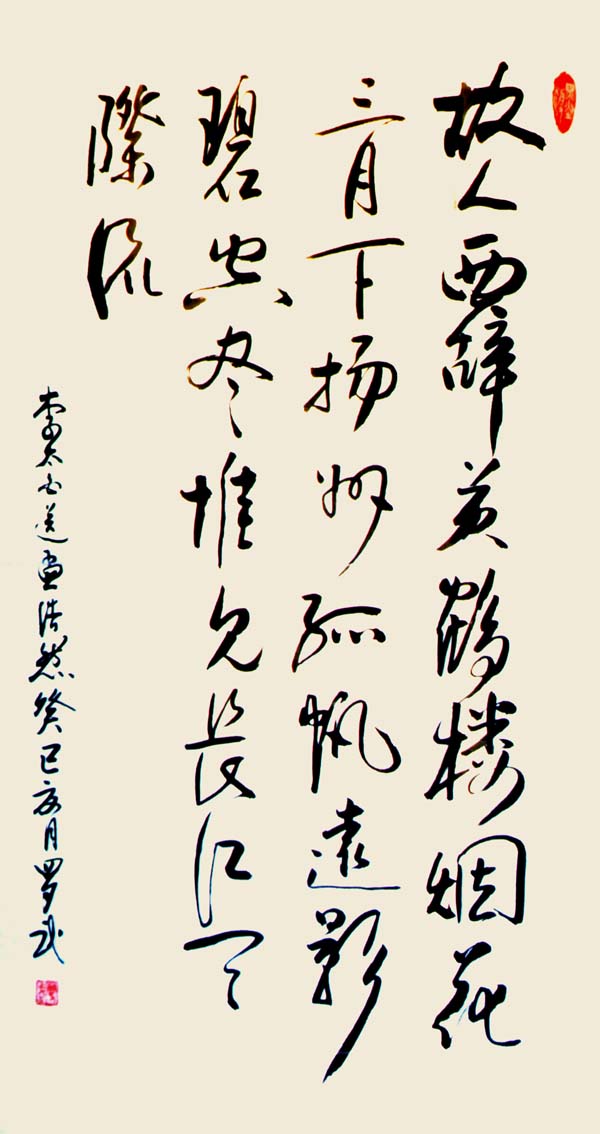 故人西辞黄鹤楼烟花
三月下扬州孤帆遠影
碧空尽惟见长江天
際流
李太白送孟浩然癸巳月罗武